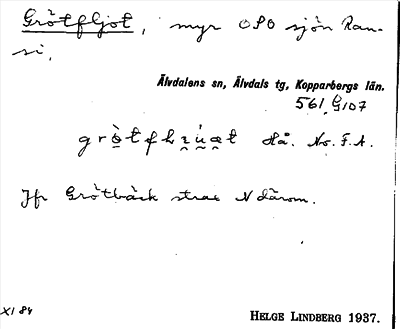 Grötfljot, myr OSO sjön Ran-
si.
Älvdalens sn, Älvdals tg, Kopparbergs län.
561 G107
Hå. No. F. A.
Jfr Grötbäck strax N därom.
XI 84
HELGE LINDBERG 1937.